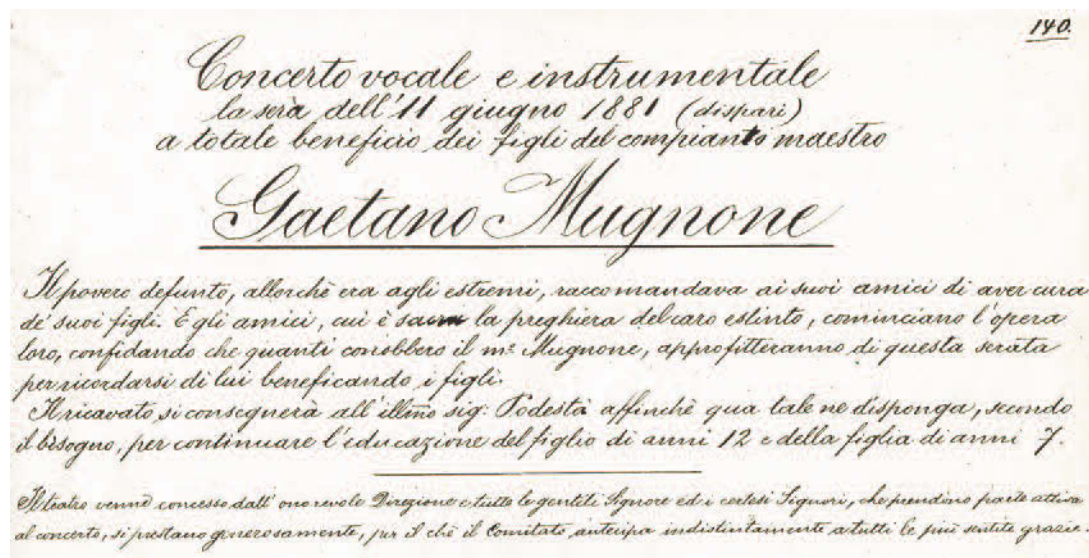 140.
Concerto vocale e instrumentale
la sera dell' 11 giugno 1881 (dispari)
a totale beneficio dei figli del compianto maestro
Gaetano Mugnone
Il povero defunto, allorchè era agli estremi, raccomandava ai suoi amici di aver cura
de' suoi figli. E gli amici, cui è sacra la preghiera del caro estinto, cominciano l'opera
loro, confidando che quanti conobbero il m.º Mugnone, approfitteranno di questa serata
per ricordarsi di lui beneficando i figli.
Il ricavato si consegnerà all' illmo sig: Podestà affinchè qua tale ne disponga, secondo
il bisogno, per continuare l'educazione del figlio di anni 12 e della figlia di anni 7.
Il teatro venne concesso dall' onorevole Direzione e tutte le gentili Signore ed i cortesi Signori, che prendono parte attiva
al concerto, si prestano generosamente, per il chè il Comitato antecipa indistintamente a tutti le più sentite grazie.